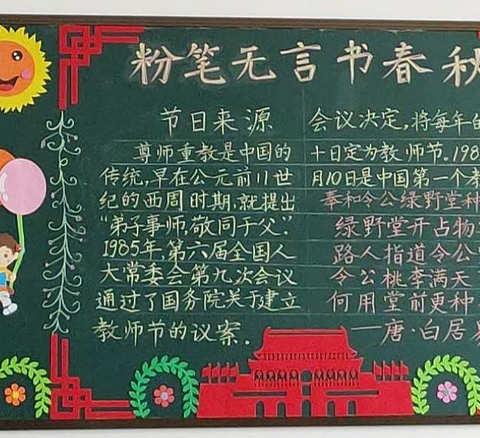 粉笔无言书春秋
节日来源
尊师重教是中国的
传统,早在公元前11世
纪的西周时期,就提出
“弟子事师,敬同于父”.
1985年,第六届全国人
大常委会第九次会议
通过了国务院关于建立
教师节的议案.
会议决定,将每年的
十日定为教师节.198
月10日是中国第一个教
奉和令公绿野堂种
绿野堂开占物
路人指道令公
令公桃李满天
何用堂前更种
—唐·白居易